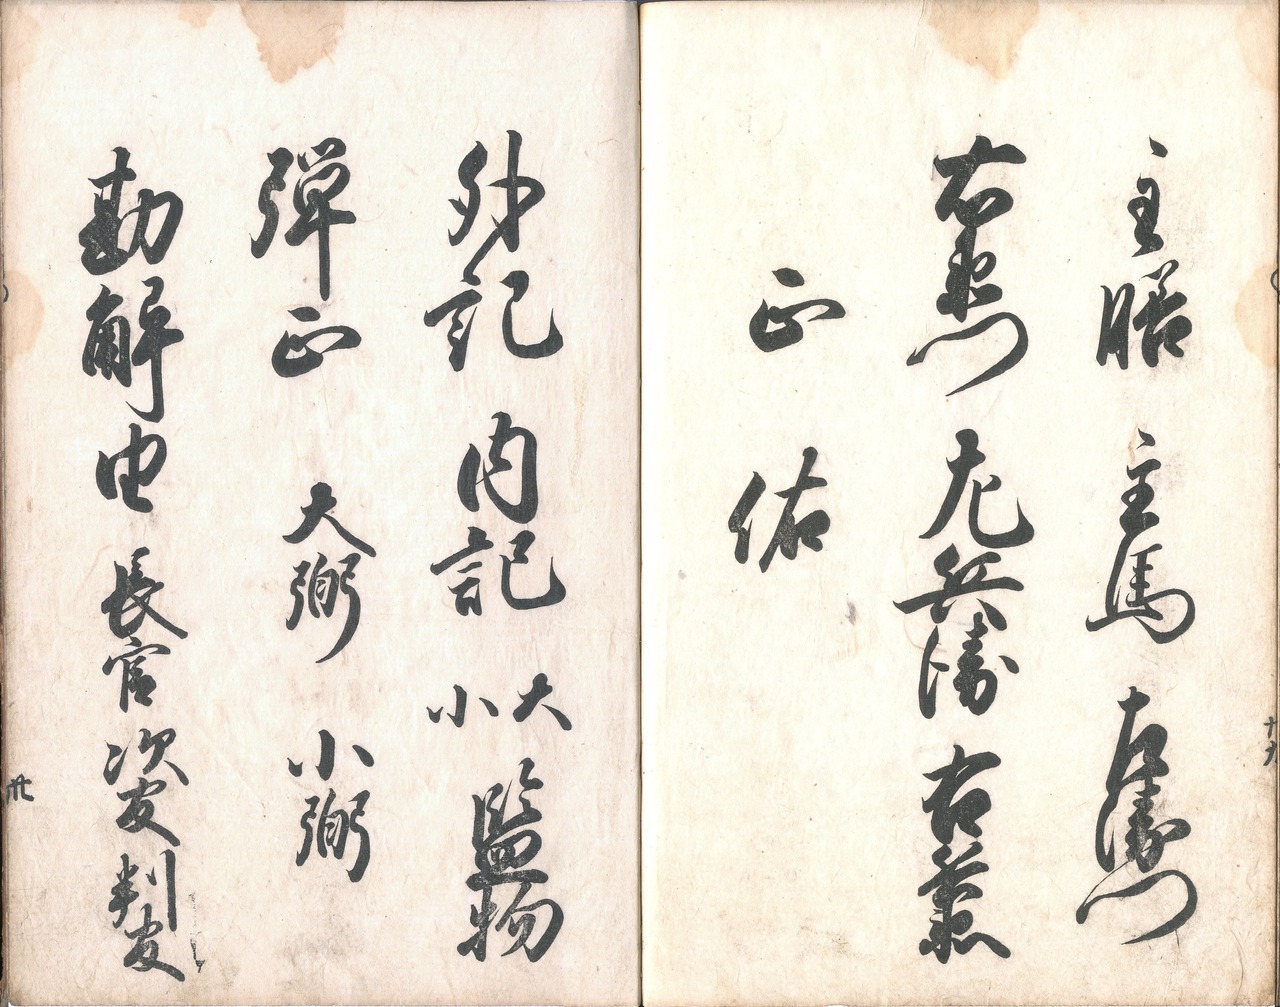 主膳 主馬 左衛門
右衛門 左兵衛 右兵衛
正 佑
十九
外記 内記 大小監物
弾正 大弼 小弼
勘解由 長官 次官 判官
廿